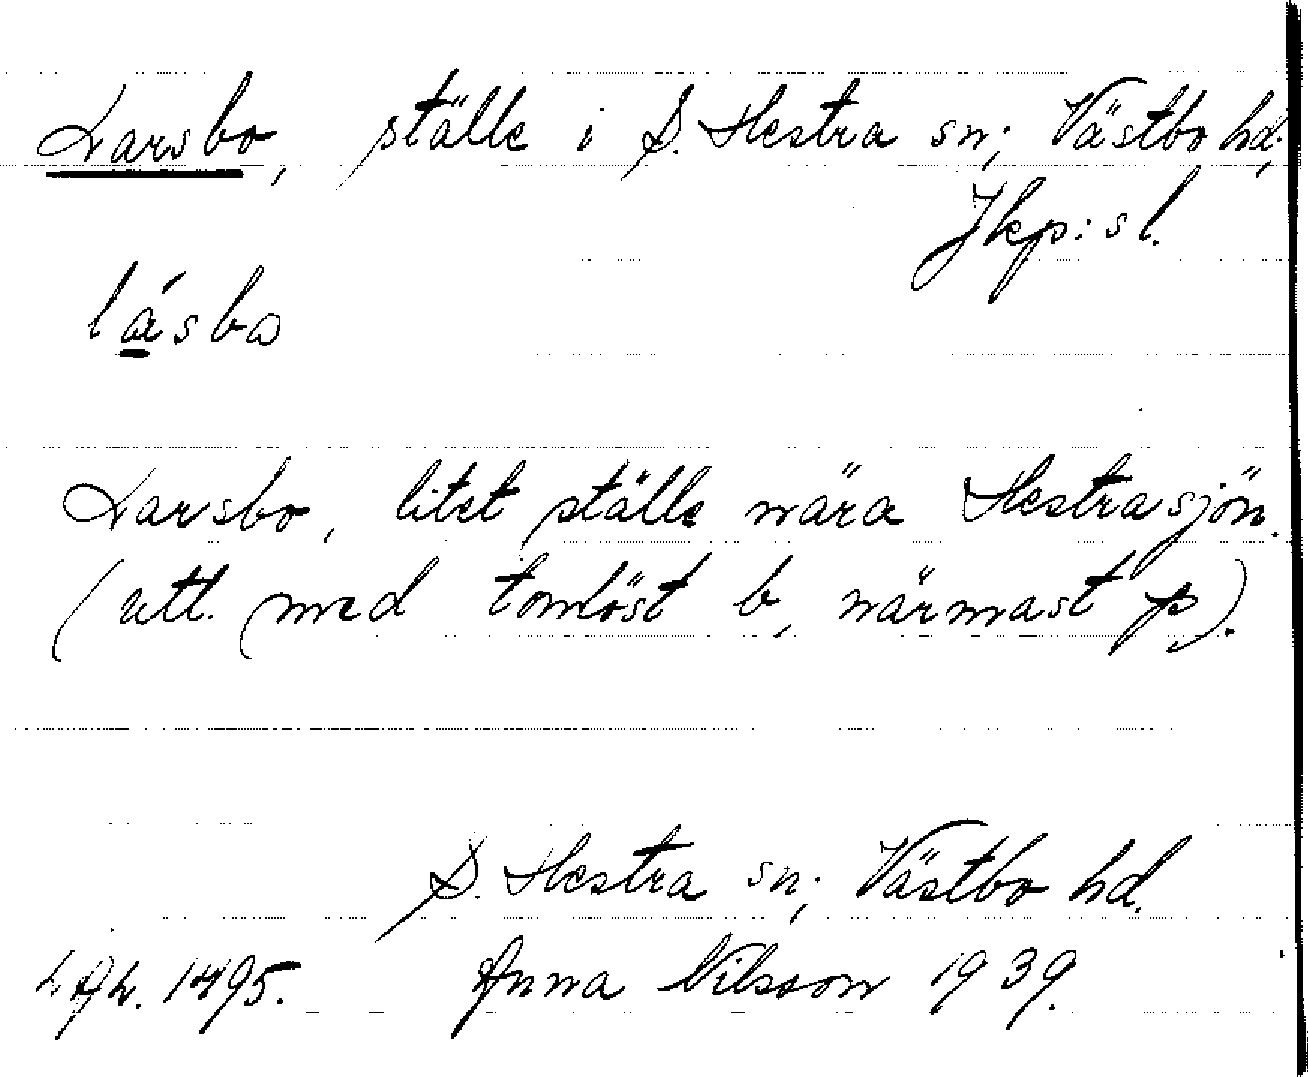 Larsbo, ställe i S. Hestra sn; Västbo hd;
Jkp:sl.
lásbo
Larsbo, litet ställe nära Hestrasjön.
(utt. med tonlöst b, närmast p).
S. Hestra sn; Västbo hd.
1495. Anna Nilsson 1939.